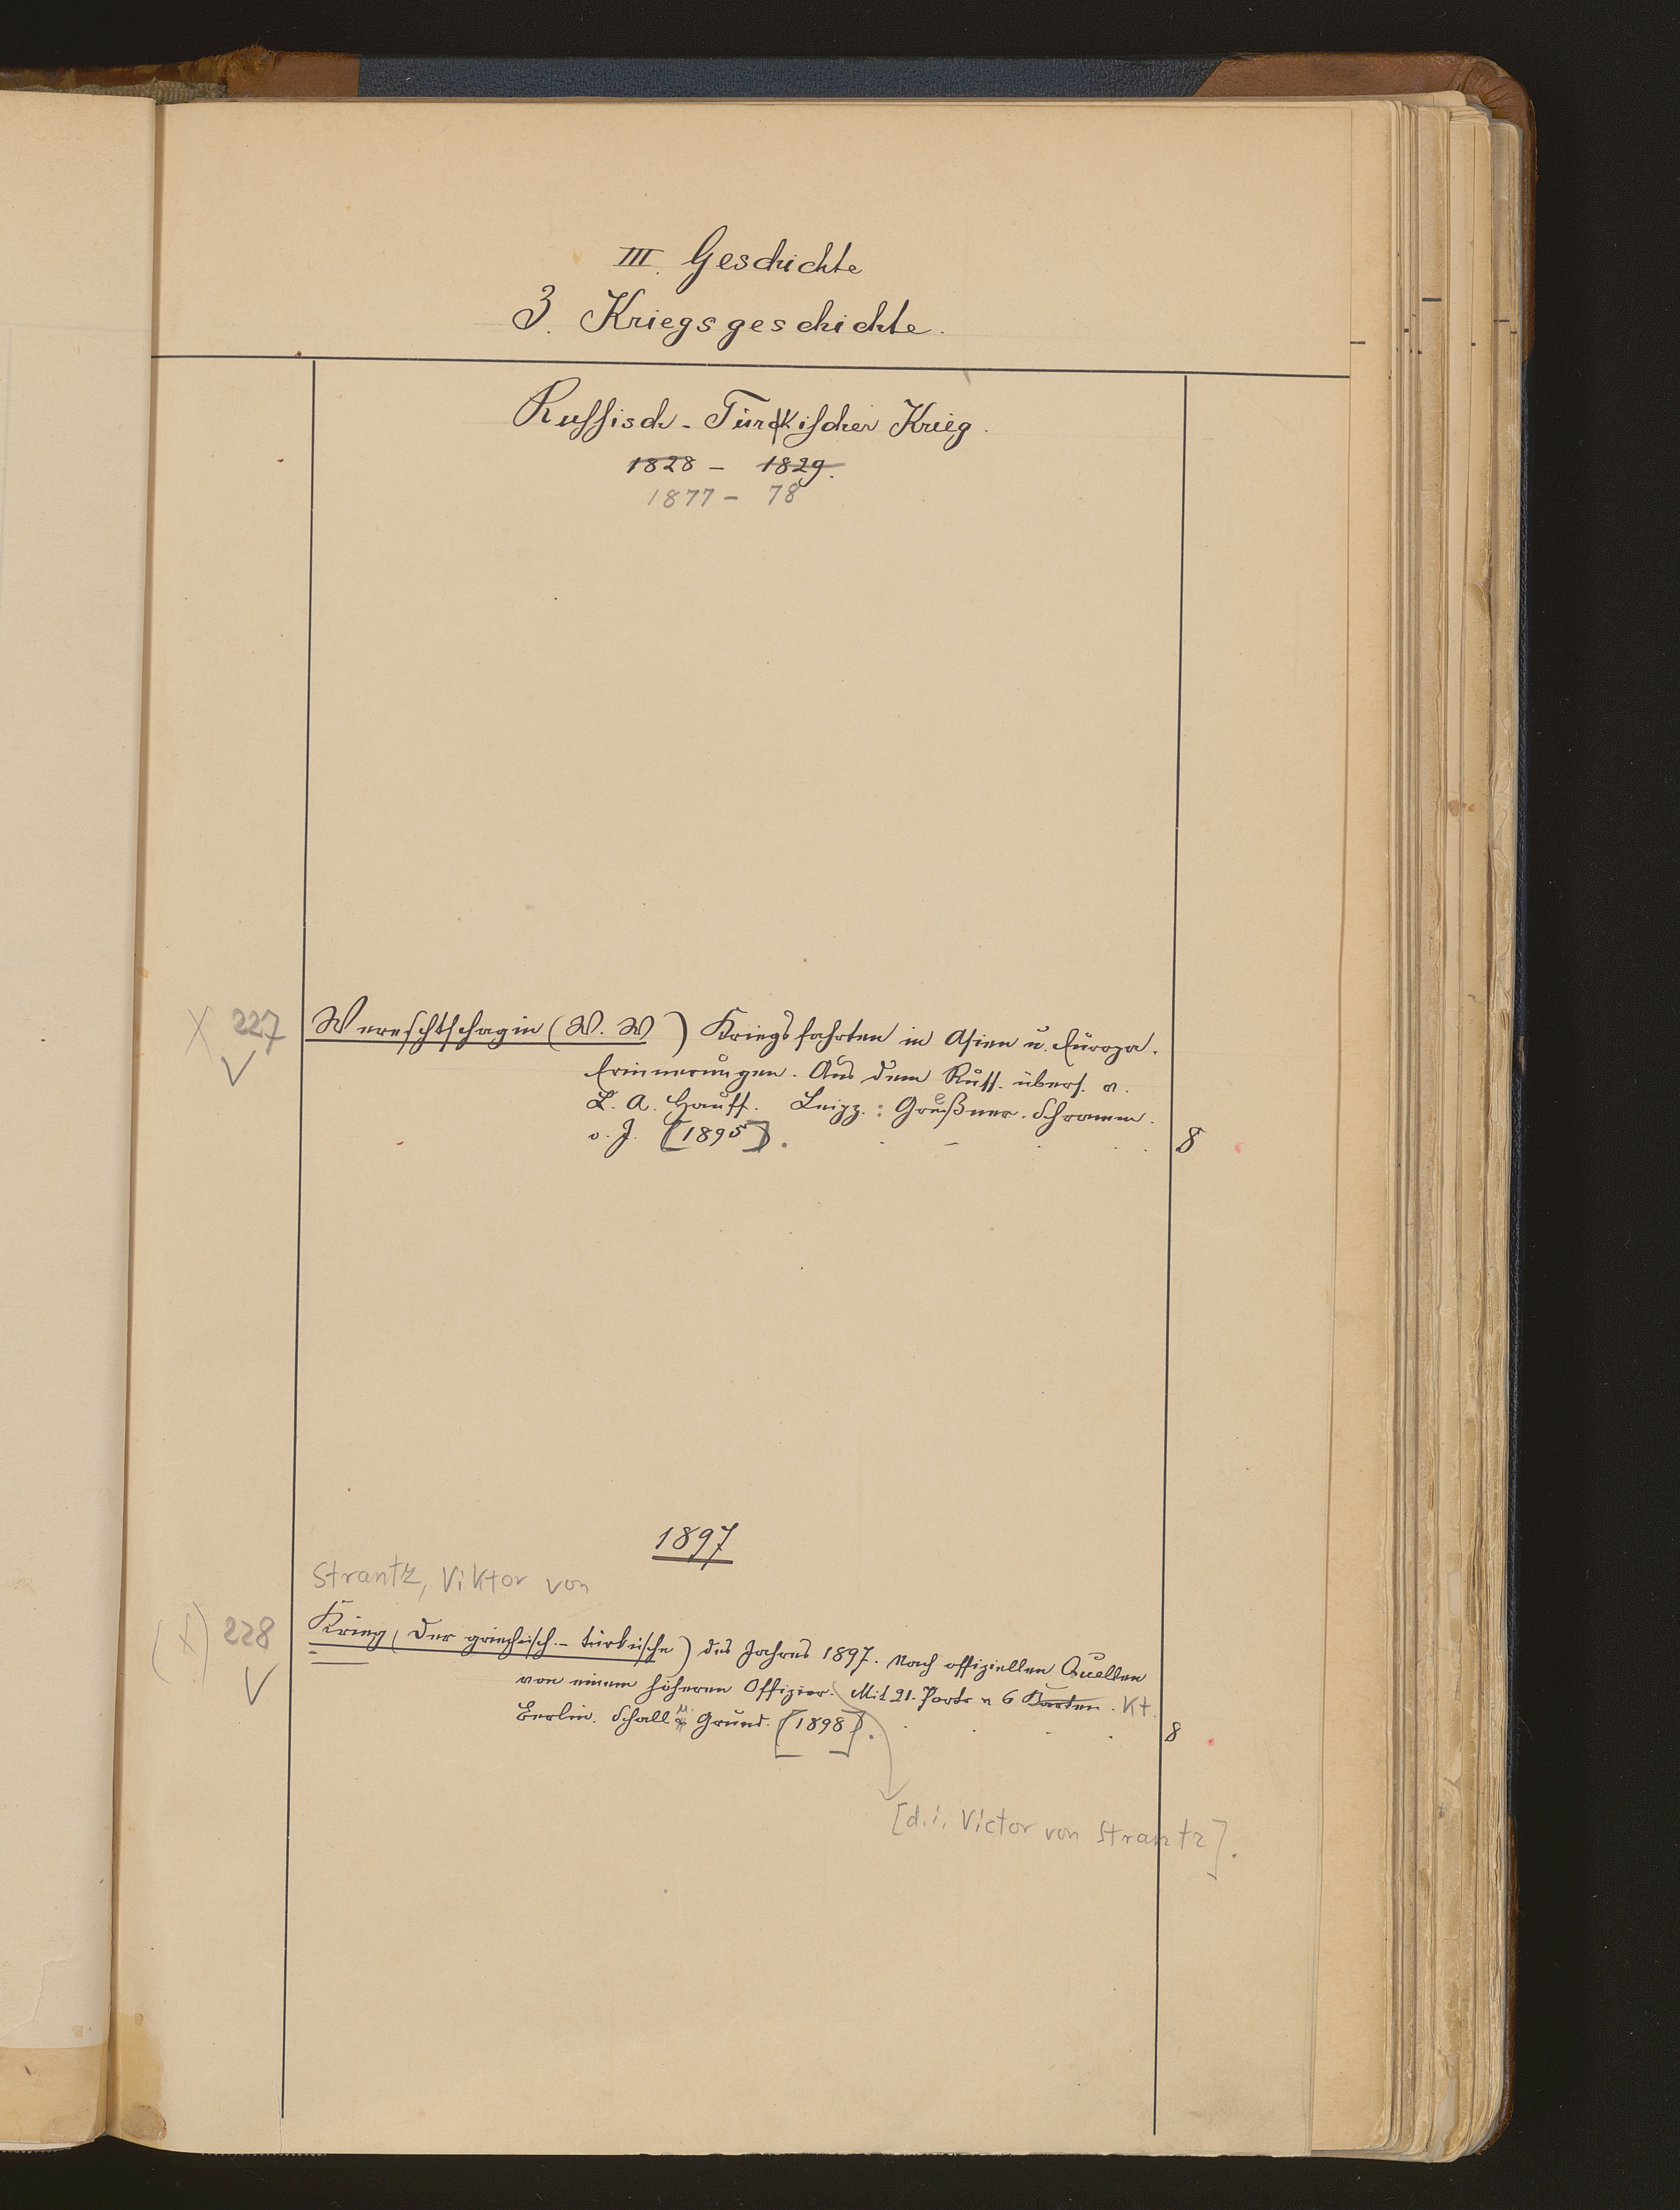 III. Geschichte
3. Kriegsgeschichte.
Russisch-Türkischer Krieg.
1828 - 1829.
1877 - 78
X 227 Wereschtschagin (W. W) Kriegsfahrten in Asien u. Europa.
Erinnerungen. Aus dem Russ. übers. v.
L. A. Hauff. Leipz.: Greßner. Schramm.
o. J. [1895]. 8
1897
Strantz, Viktor von
(X) 228 Krieg (Der griechisch.-türkische) des Jahres 1897. Nach offiziellen Quellen
von einem höheren Offizier. Mit 21. Portr u 6 Karten. Kt.
Berlin. Schall u Grund. [1898]. 8
[d. i. Victor von Strantz].